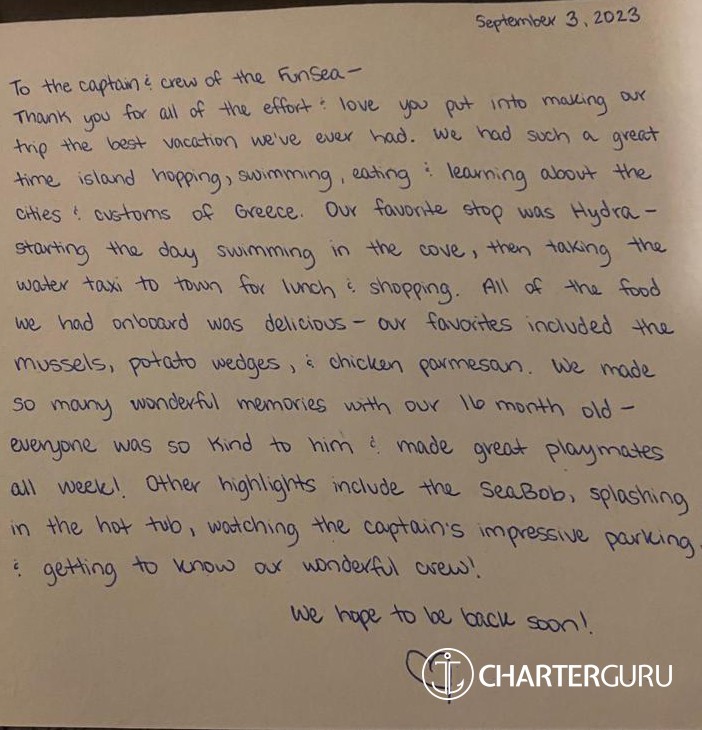 September 3, 2023
To the captain & crew of the FunSea –
Thank you for all of the effort & love you put into making our
trip the best vacation we've ever had. We had such a great
time island hopping, swimming, eating & learning about the
cities & customs of Greece. Our favorite stop was Hydra –
starting the day swimming in the cove, then taking the
water taxi to town for lunch & shopping. All of the food
we had onboard was delicious – our favorites included the
mussels, potato wedges, & chicken parmesan. We made
so many wonderful memories with our 16 month old –
everyone was so kind to him & made great playmates
all week! Other highlights include the SeaBob, splashing
in the hot tub, watching the captain's impressive parking,
& getting to know our wonderful crew!
We hope to be back soon!
CHARTERGURU